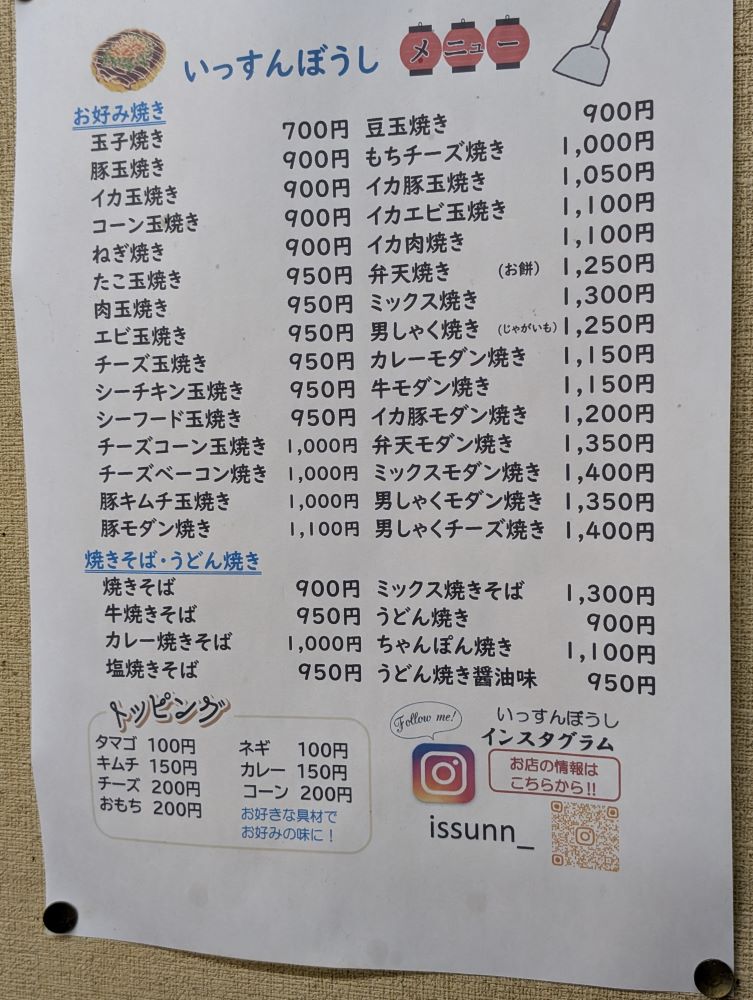 いっすんぼうし メニュー
お好み焼き
玉子焼き 700円
豚玉焼き 900円
イカ玉焼き 900円
コーン玉焼き 900円
ねぎ焼き 900円
たこ玉焼き 950円
肉玉焼き 950円
エビ玉焼き 950円
チーズ玉焼き 950円
シーチキン玉焼き 950円
シーフード玉焼き 950円
チーズコーン玉焼き 1,000円
チーズベーコン焼き 1,000円
豚キムチ玉焼き 1,000円
豚モダン焼き 1,100円
豆玉焼き 900円
もちチーズ焼き 1,000円
イカ豚玉焼き 1,050円
イカエビ玉焼き 1,100円
イカ肉焼き 1,100円
弁天焼き (お餅) 1,250円
ミックス焼き 1,300円
男しゃく焼き (じゃがいも) 1,250円
カレーモダン焼き 1,150円
牛モダン焼き 1,150円
イカ豚モダン焼き 1,200円
弁天モダン焼き 1,350円
ミックスモダン焼き 1,400円
男しゃくモダン焼き 1,350円
男しゃくチーズ焼き 1,400円
焼きそば・うどん焼き
焼きそば 900円
牛焼きそば 950円
カレー焼きそば 1,000円
塩焼きそば 950円
ミックス焼きそば 1,300円
うどん焼き 900円
ちゃんぽん焼き 1,100円
うどん焼き醤油味 950円
トッピング
タマゴ 100円
キムチ 150円
チーズ 200円
おもち 200円
ネギ 100円
カレー 150円
コーン 200円
お好きな具材で
お好みの味に！
Follow me!
いっすんぼうし
インスタグラム
お店の情報は
こちらから!!
issunn_